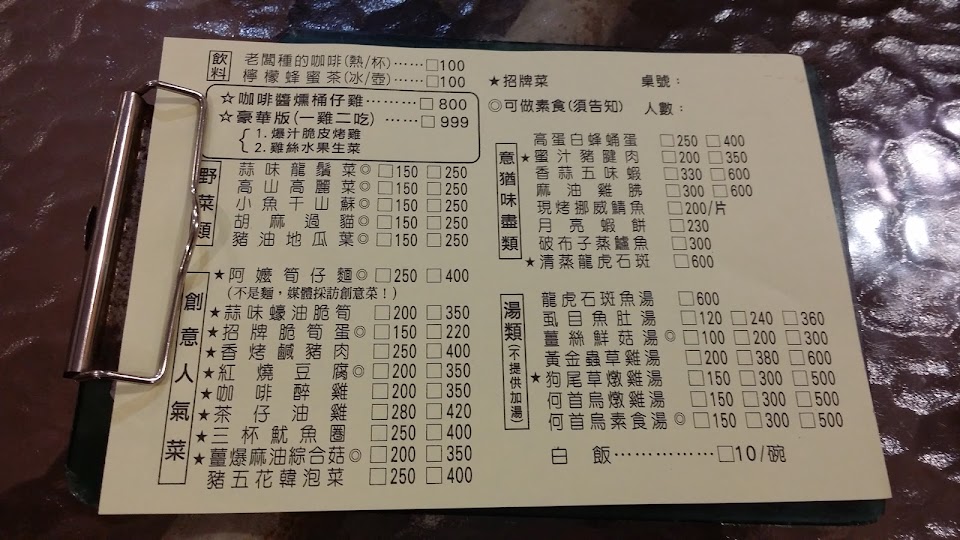 飲料
老闆種的咖啡(熱/杯)……□100
檸檬蜂蜜茶(冰/壺)………□100
☆咖啡醬燻桶仔雞………□800
☆豪華版(一雞二吃)……□999
1.爆汁脆皮烤雞
2.雞絲水果生菜
野菜類
蒜味龍鬚菜◎□150 □250
高山高麗菜◎□150 □250
小魚干山蘇◎□150 □250
胡麻過貓◎□150 □250
豬油地瓜葉◎□150 □250
創意人氣菜
★阿嬤筍仔麵◎□250 □400
(不是麵,媒體採訪創意菜!)
★蒜味蠔油脆筍 □200 □350
★招牌脆筍蛋◎□150 □220
★香烤鹹豬肉 □250 □400
★紅燒豆腐◎□200 □350
★咖啡醉雞 □200 □350
★茶仔油雞 □280 □420
★三杯魷魚圈 □250 □400
★薑爆麻油綜合菇◎□200 □350
豬五花韓泡菜 □250 □400
★招牌菜 桌號:
◎可做素食(須告知) 人數:
意猶味盡類
高蛋白蜂蛹蛋 □250 □400
★蜜汁豬腱肉 □200 □350
香蒜五味蝦 □330 □600
麻油雞腁 □300 □600
現烤挪威鯖魚 □200/片
月亮蝦餅 □230
破布子蒸鱸魚 □300
★清蒸龍虎石斑 □600
湯類(不提供加湯)
龍虎石斑魚湯 □600
虱目魚肚湯 □120 □240 □360
薑絲鮮菇湯◎□100 □200 □300
黃金蟲草雞湯 □200 □380 □600
★狗尾草燉雞湯 □150 □300 □500
何首烏燉雞湯 □150 □300 □500
何首烏素食湯◎□150 □300 □500
白飯……………□10/碗